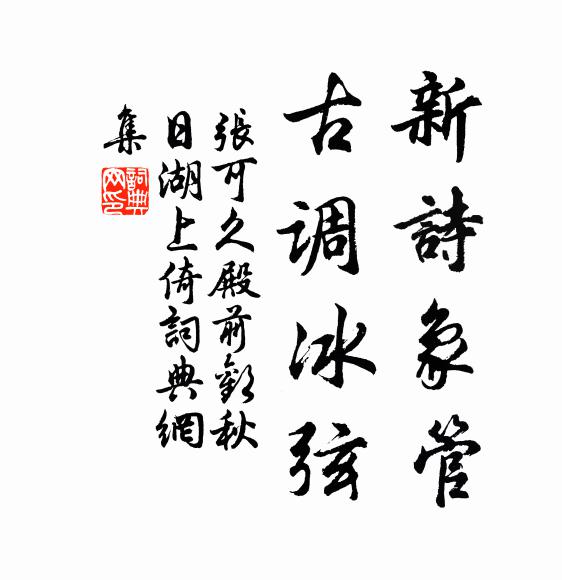 新詩象管
古調冰弦
張可久殿前歡秋
日湖上倚詞典網
集
詞典網印